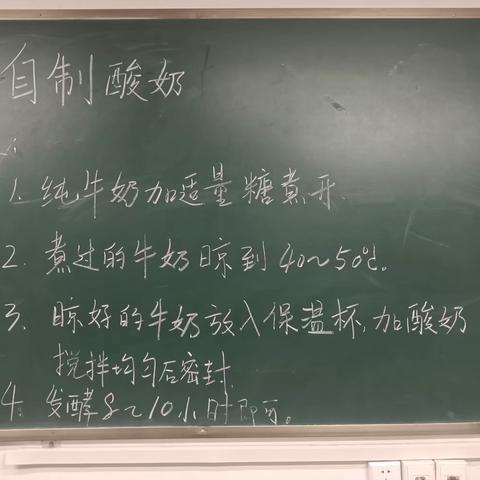 自制酸奶
1. 纯牛奶加适量糖煮开.
2. 煮过的牛奶晾到 40~50℃。
3. 晾好的牛奶放入保温杯,加酸奶
搅拌均匀后密封.
4. 发酵8~10小时即可。